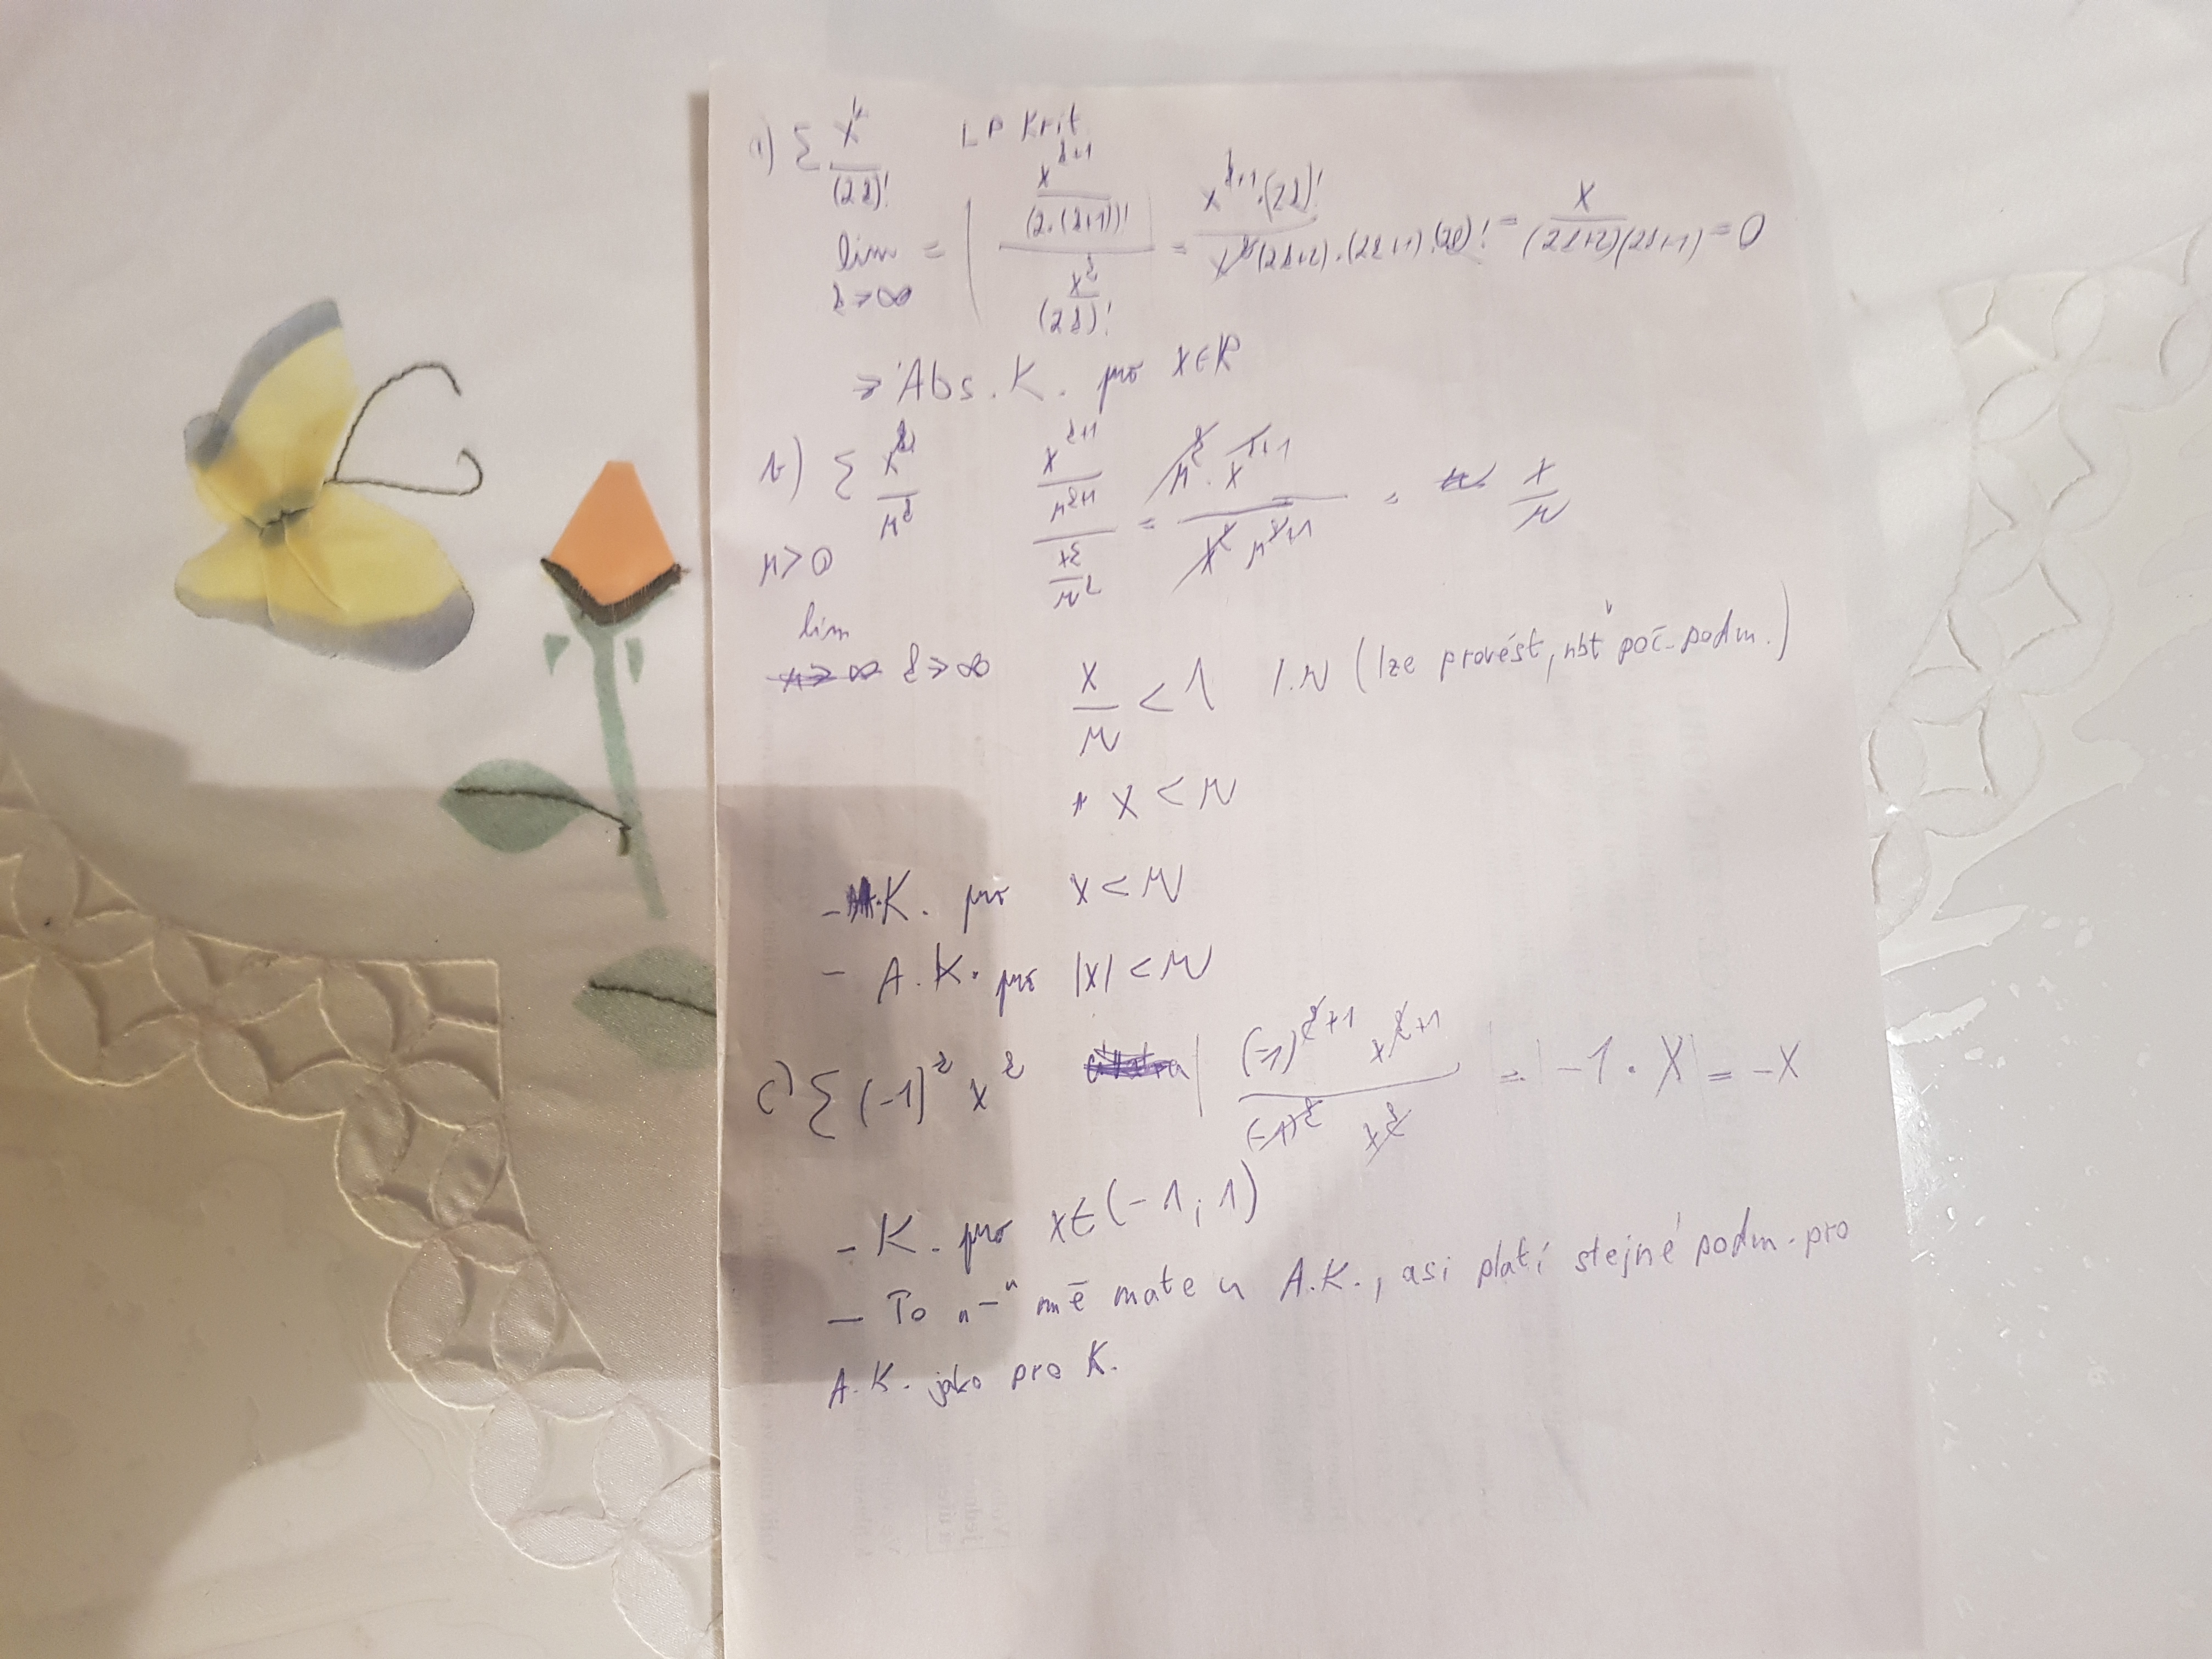 a) Σ x^k / (2k)! LP Krit.
lim k→∞ = | (x^(k+1) / (2·(k+1))!) / (x^k / (2k)!) | = x^(k+1)·(2k)! / x^k(2k+2)·(2k+1)·(2k)! = x / (2k+2)(2k+1) = 0
⇒ Abs. K. pro x∈R
b) Σ x^k / r^k (x^(k+1) / r^(k+1)) / (x^k / r^k) = r^k · x^(k+1) / x^k r^(k+1) = x / r
r > 0
lim k→∞
x / r < 1 /·r (lze provést, nbť poč. podm.)
x < r
- K. pro x < r
- A.K. pro |x| < r
c) Σ (-1)^k x^k | (-1)^(k+1) x^(k+1) / (-1)^k x^k | = |-1 · x| = -x
- K. pro x∈(-1; 1)
- To „-" mě mate u A.K., asi platí stejné podm. pro
A.K. jako pro K.